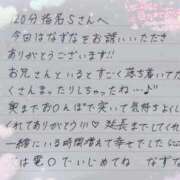 120分指名Sさんへ
今回はなずなをお誘いいただき
ありがとうございます!!
お兄さんといるとすごく落ち着いてた
くさんまったりしちゃったね…♪
奥までおOんぽで突いて気持ちよくし
れてありがとう!!♡ 延長までしてくれ
一緒にいる時間増えて幸せでした
は電〇でいじめてね なずな